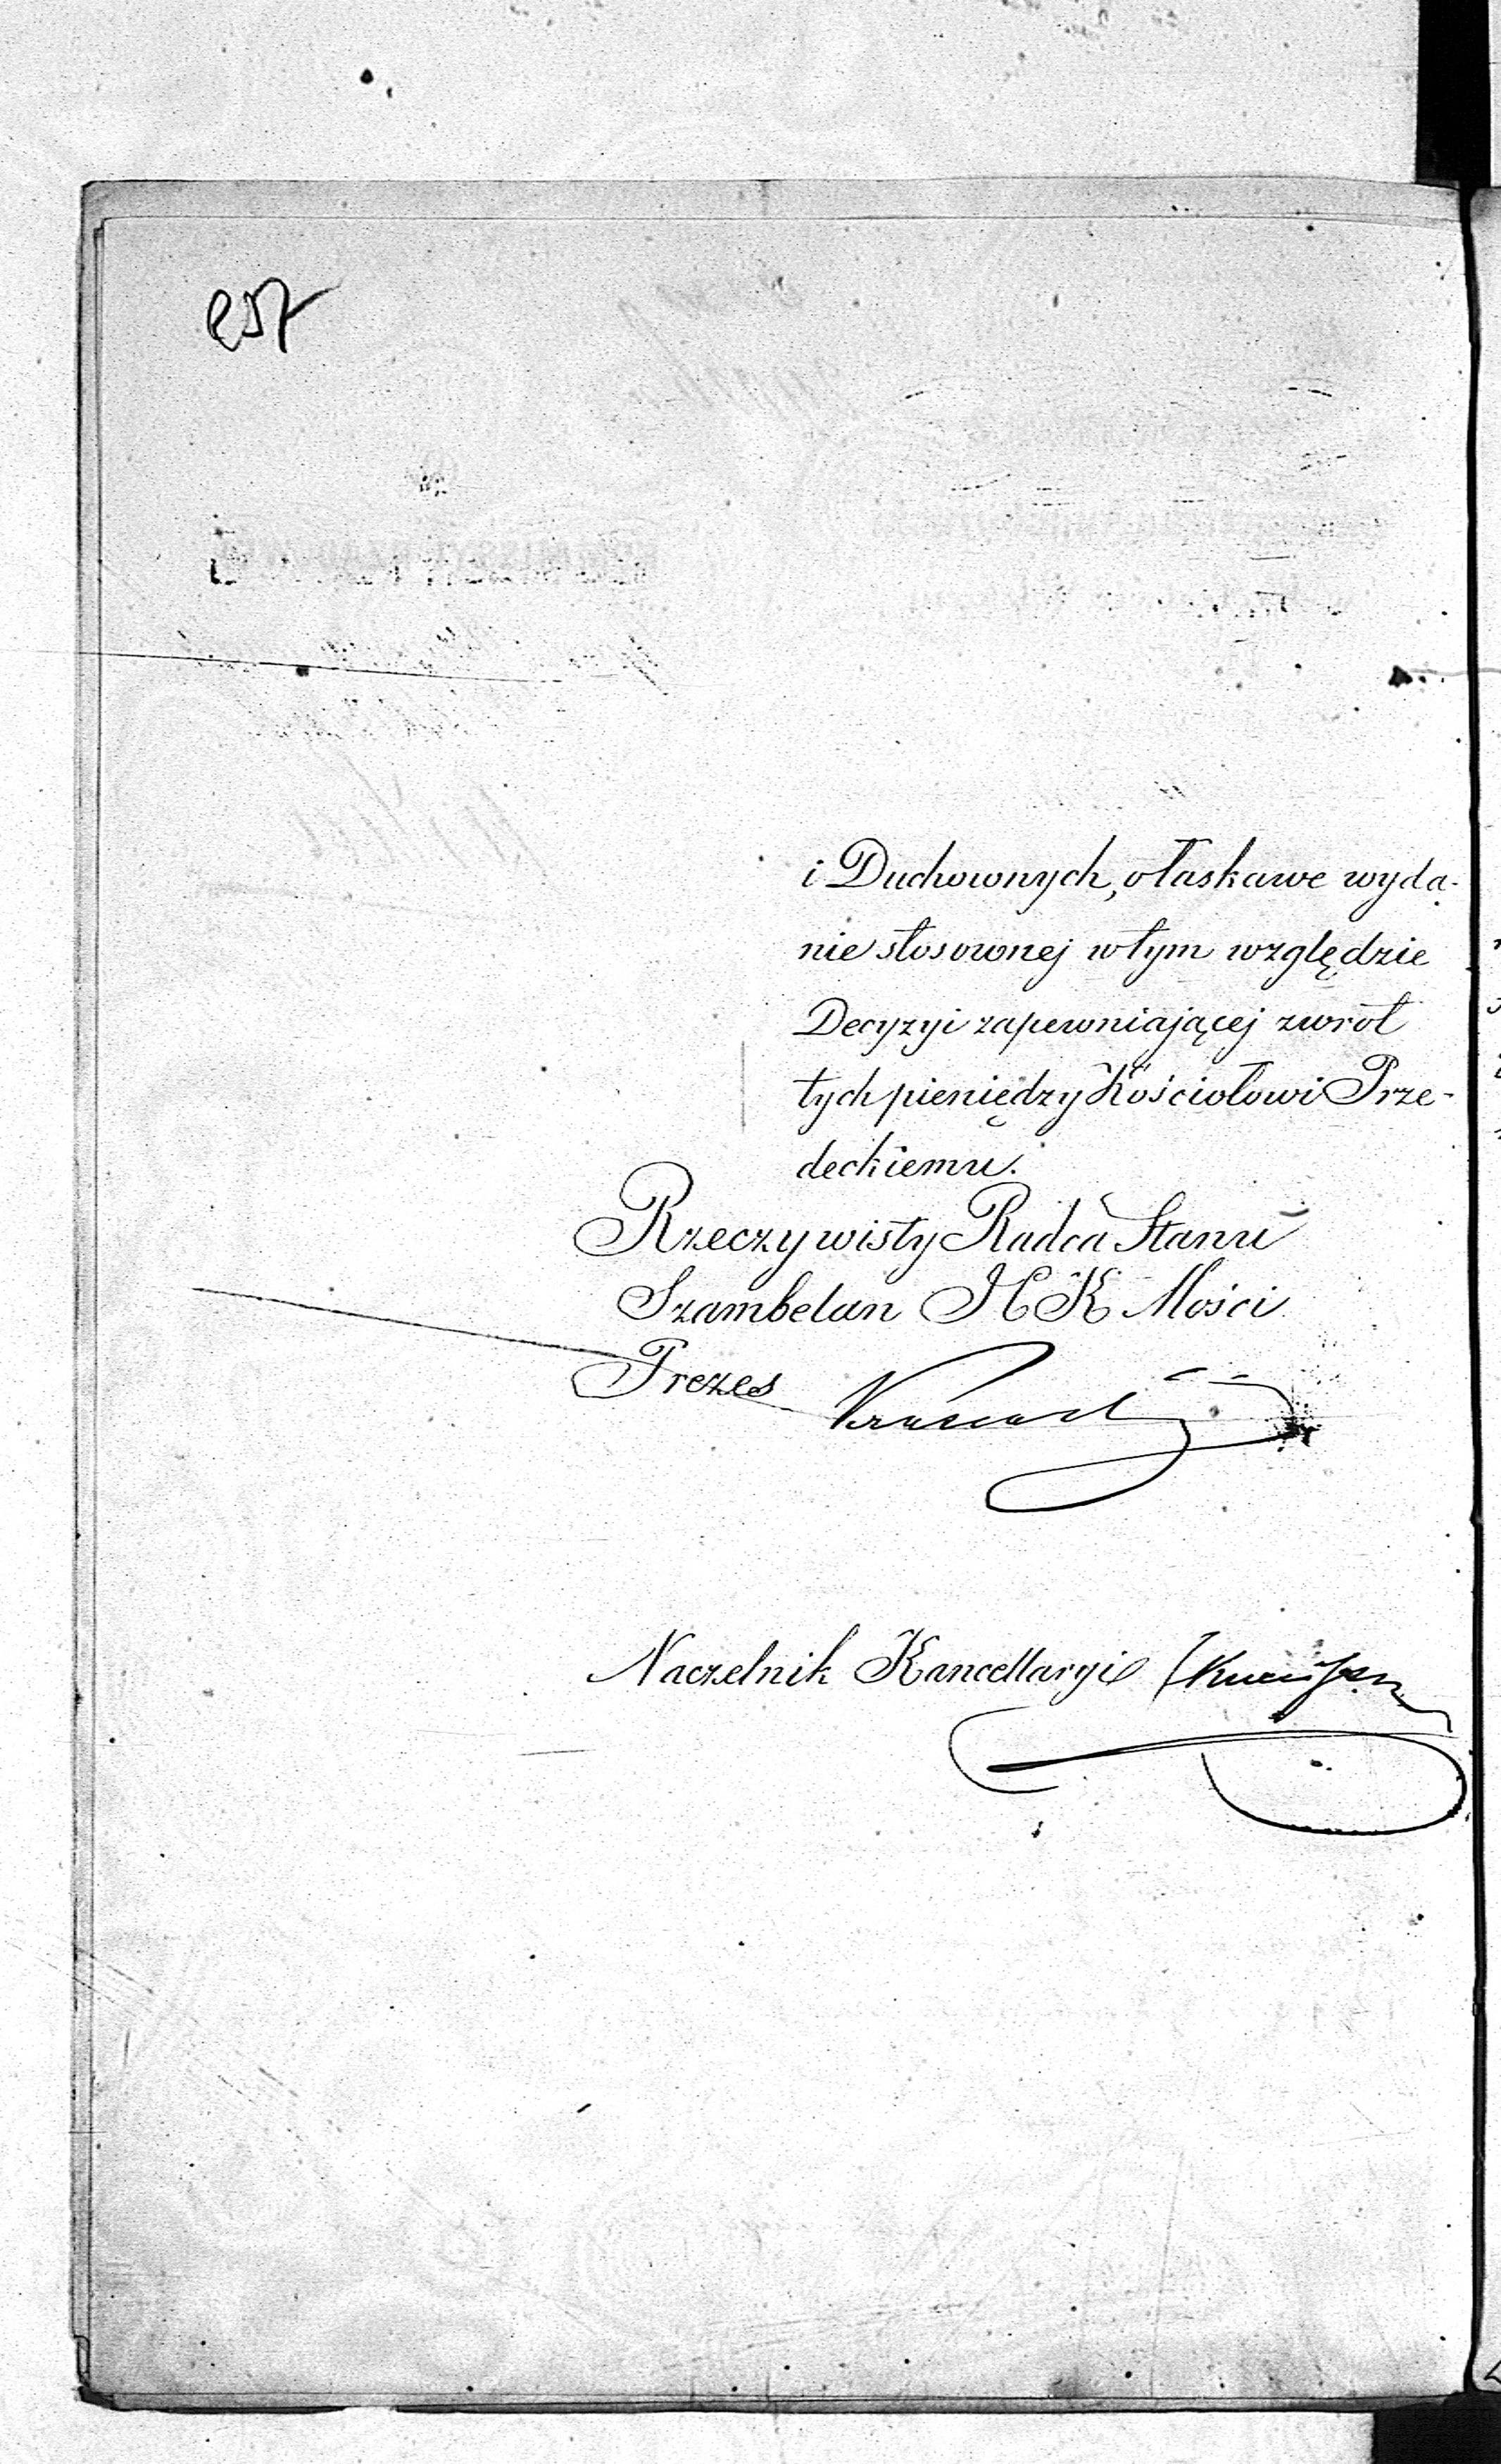 257
i Duchownych, o łaskawe wyda-
nie stosownej w tym względzie
Decyzyi zapewniającej zwrot
tych pieniędzy Kościołowi Prze-
deckiemu.
Rzeczywisty Radca Stanu
Szambelan J C K Mości
Prezes
Naczelnik Kancellaryi